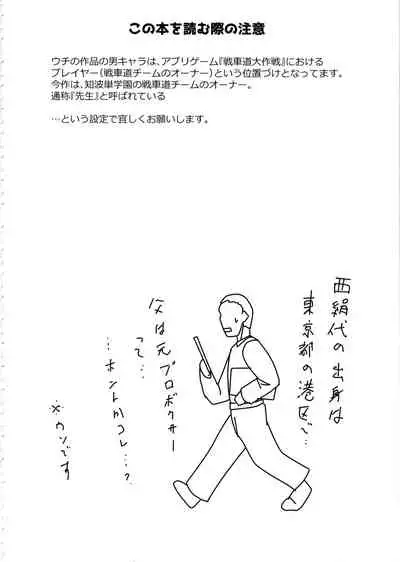 この本を読む際の注意
ウチの作品の男キャラは、アプリゲーム『戦車道大作戦』における
プレイヤー（戦車道チームのオーナー）という位置づけとなってます。
今作は、知波単学園の戦車道チームのオーナー。
通称『先生』と呼ばれている
…という設定で宜しくお願いします。
西絹代の出身は
東京都の港区で…
父は元プロボクサー
って…
…ホントかコレ…？
※ウソです